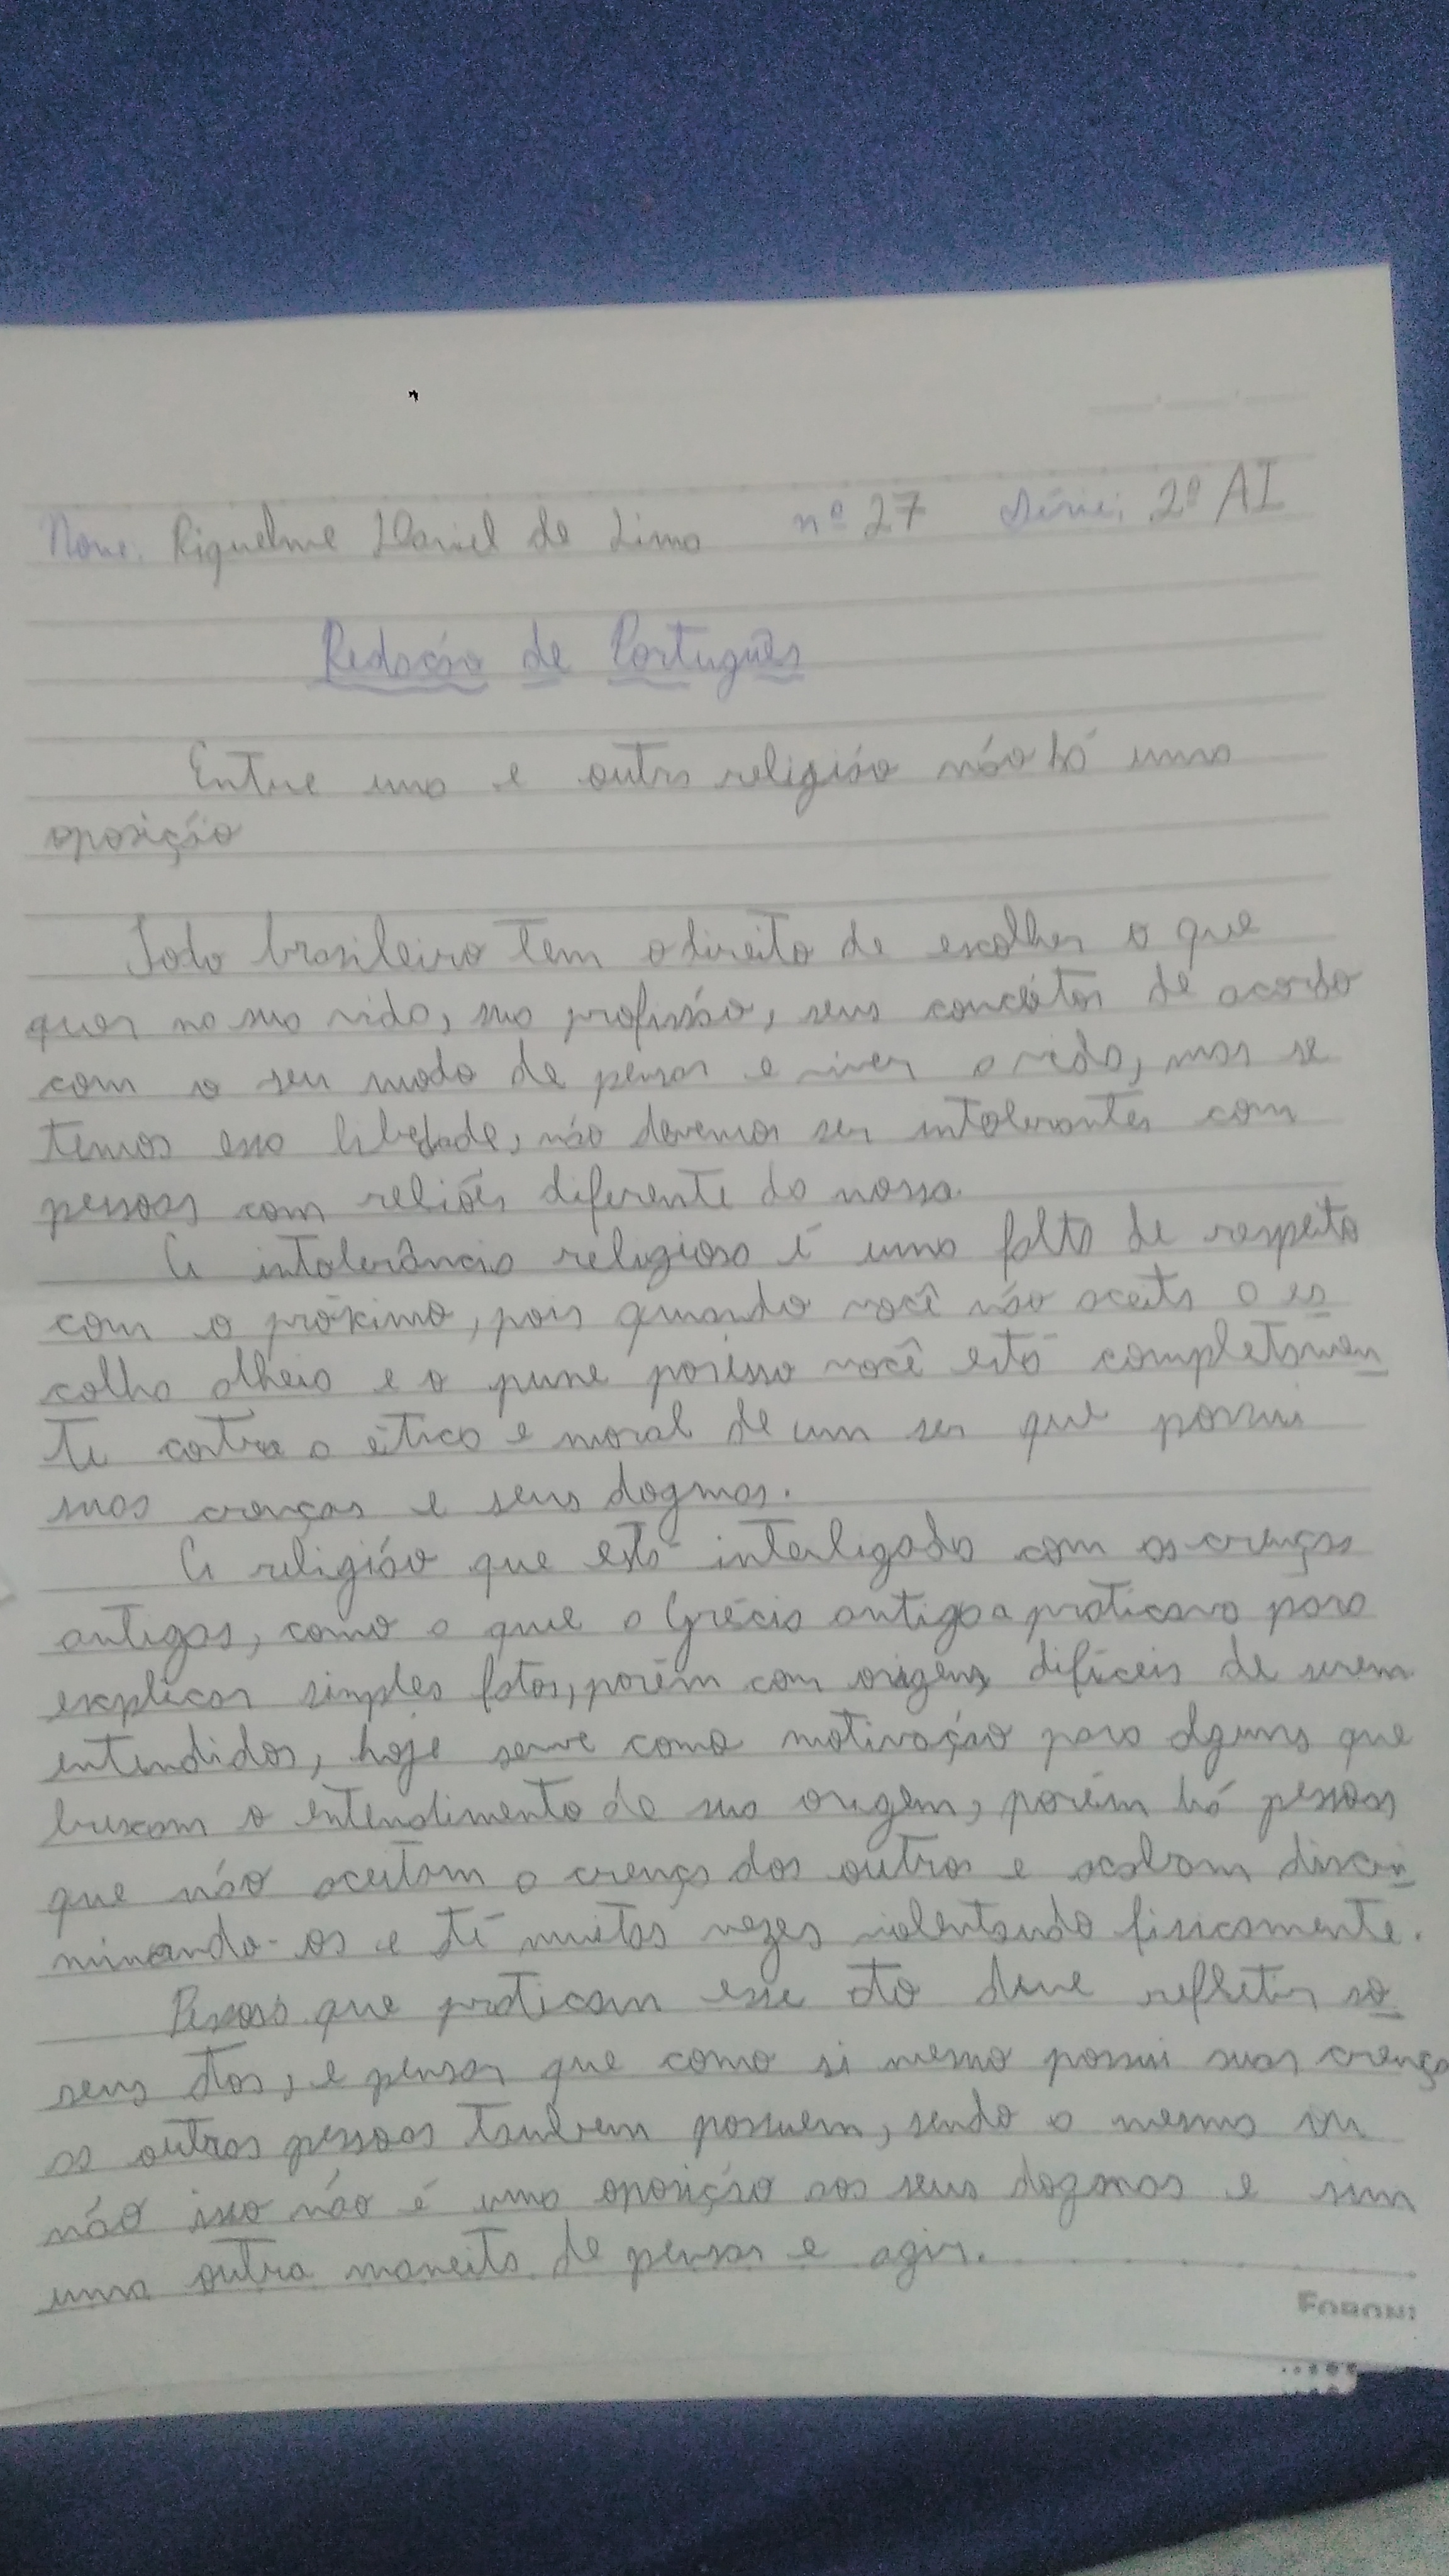 Nome: Riquelme Daniel de Lima nº 27 Série: 2º AI
Redação de Português
Entre uma e outra religião não há uma
oposição
Todo brasileiro tem o direito de escolher o que
quer na sua vida, sua profissão, seus conceitos de acordo
com o seu modo de pensar e viver a vida, mas se
temos essa liberdade, não devemos ser intolerantes com
pessoas com reliões diferente da nossa.
A intolerância religiosa é uma falta de respeito
com o próximo, pois quando você não aceita a es
colha alheia e o pune porisso você está completamen
te contra a ética e moral de um ser que possui
suas crenças e seus dogmas.
A religião que está interligada com as crenças
antigas, como o que a Grécia antiga praticava para
explicar simples fatos, porém com origens difíceis de serem
entendidos, hoje serve como motivação para alguns que
buscam o entendimento de sua origem, porém há pessoas
que não aceitam a crença dos outros e acabam discri
minando-os e té muitas vezes violentando fisicamente.
Pessoas que praticam esse ato deve refletir so
seus atos, e pensar que como si mesmo possui suas crença
as outras pessoas tambem possuem, sendo a mesma ou
não isso não é uma oposição aos seus dogmas e sim
uma outra maneita de pensar e agir.
FORONI